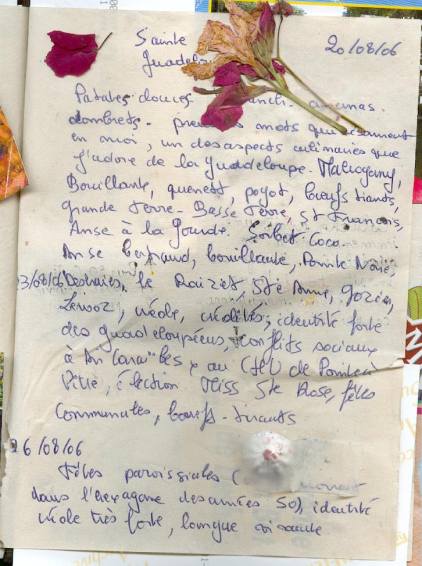 Sainte 20/08/06
Guadelou
Patates douces ananas
sombrets. premiers mots qui résonnent
en moi, un des aspects culinaires que
j'adore de la Guadeloupe. Mahogany,
Bouillante, quenett, poyot, bœufs tirants,
Grande Terre - Basse Terre, St François,
Anse à la Gourde. Sorbet Coco.
Anse Bertrand, bouillante, Pointe Noire,
23/08/06 Deshaies, le Raizet, Ste Anne, Gozier,
Lewoz, créole, créolités, identité forte
des guadeloupéens, conflits sociaux
à An Cara"bes, au CHU de Pointe à
Pitre, élection Miss Ste Rose, fêtes
Communales, bœufs-tirants
26/08/06
Fêtes paroissiales (
dans l'hexagone des années 50), identité
créole très forte, langue vivante